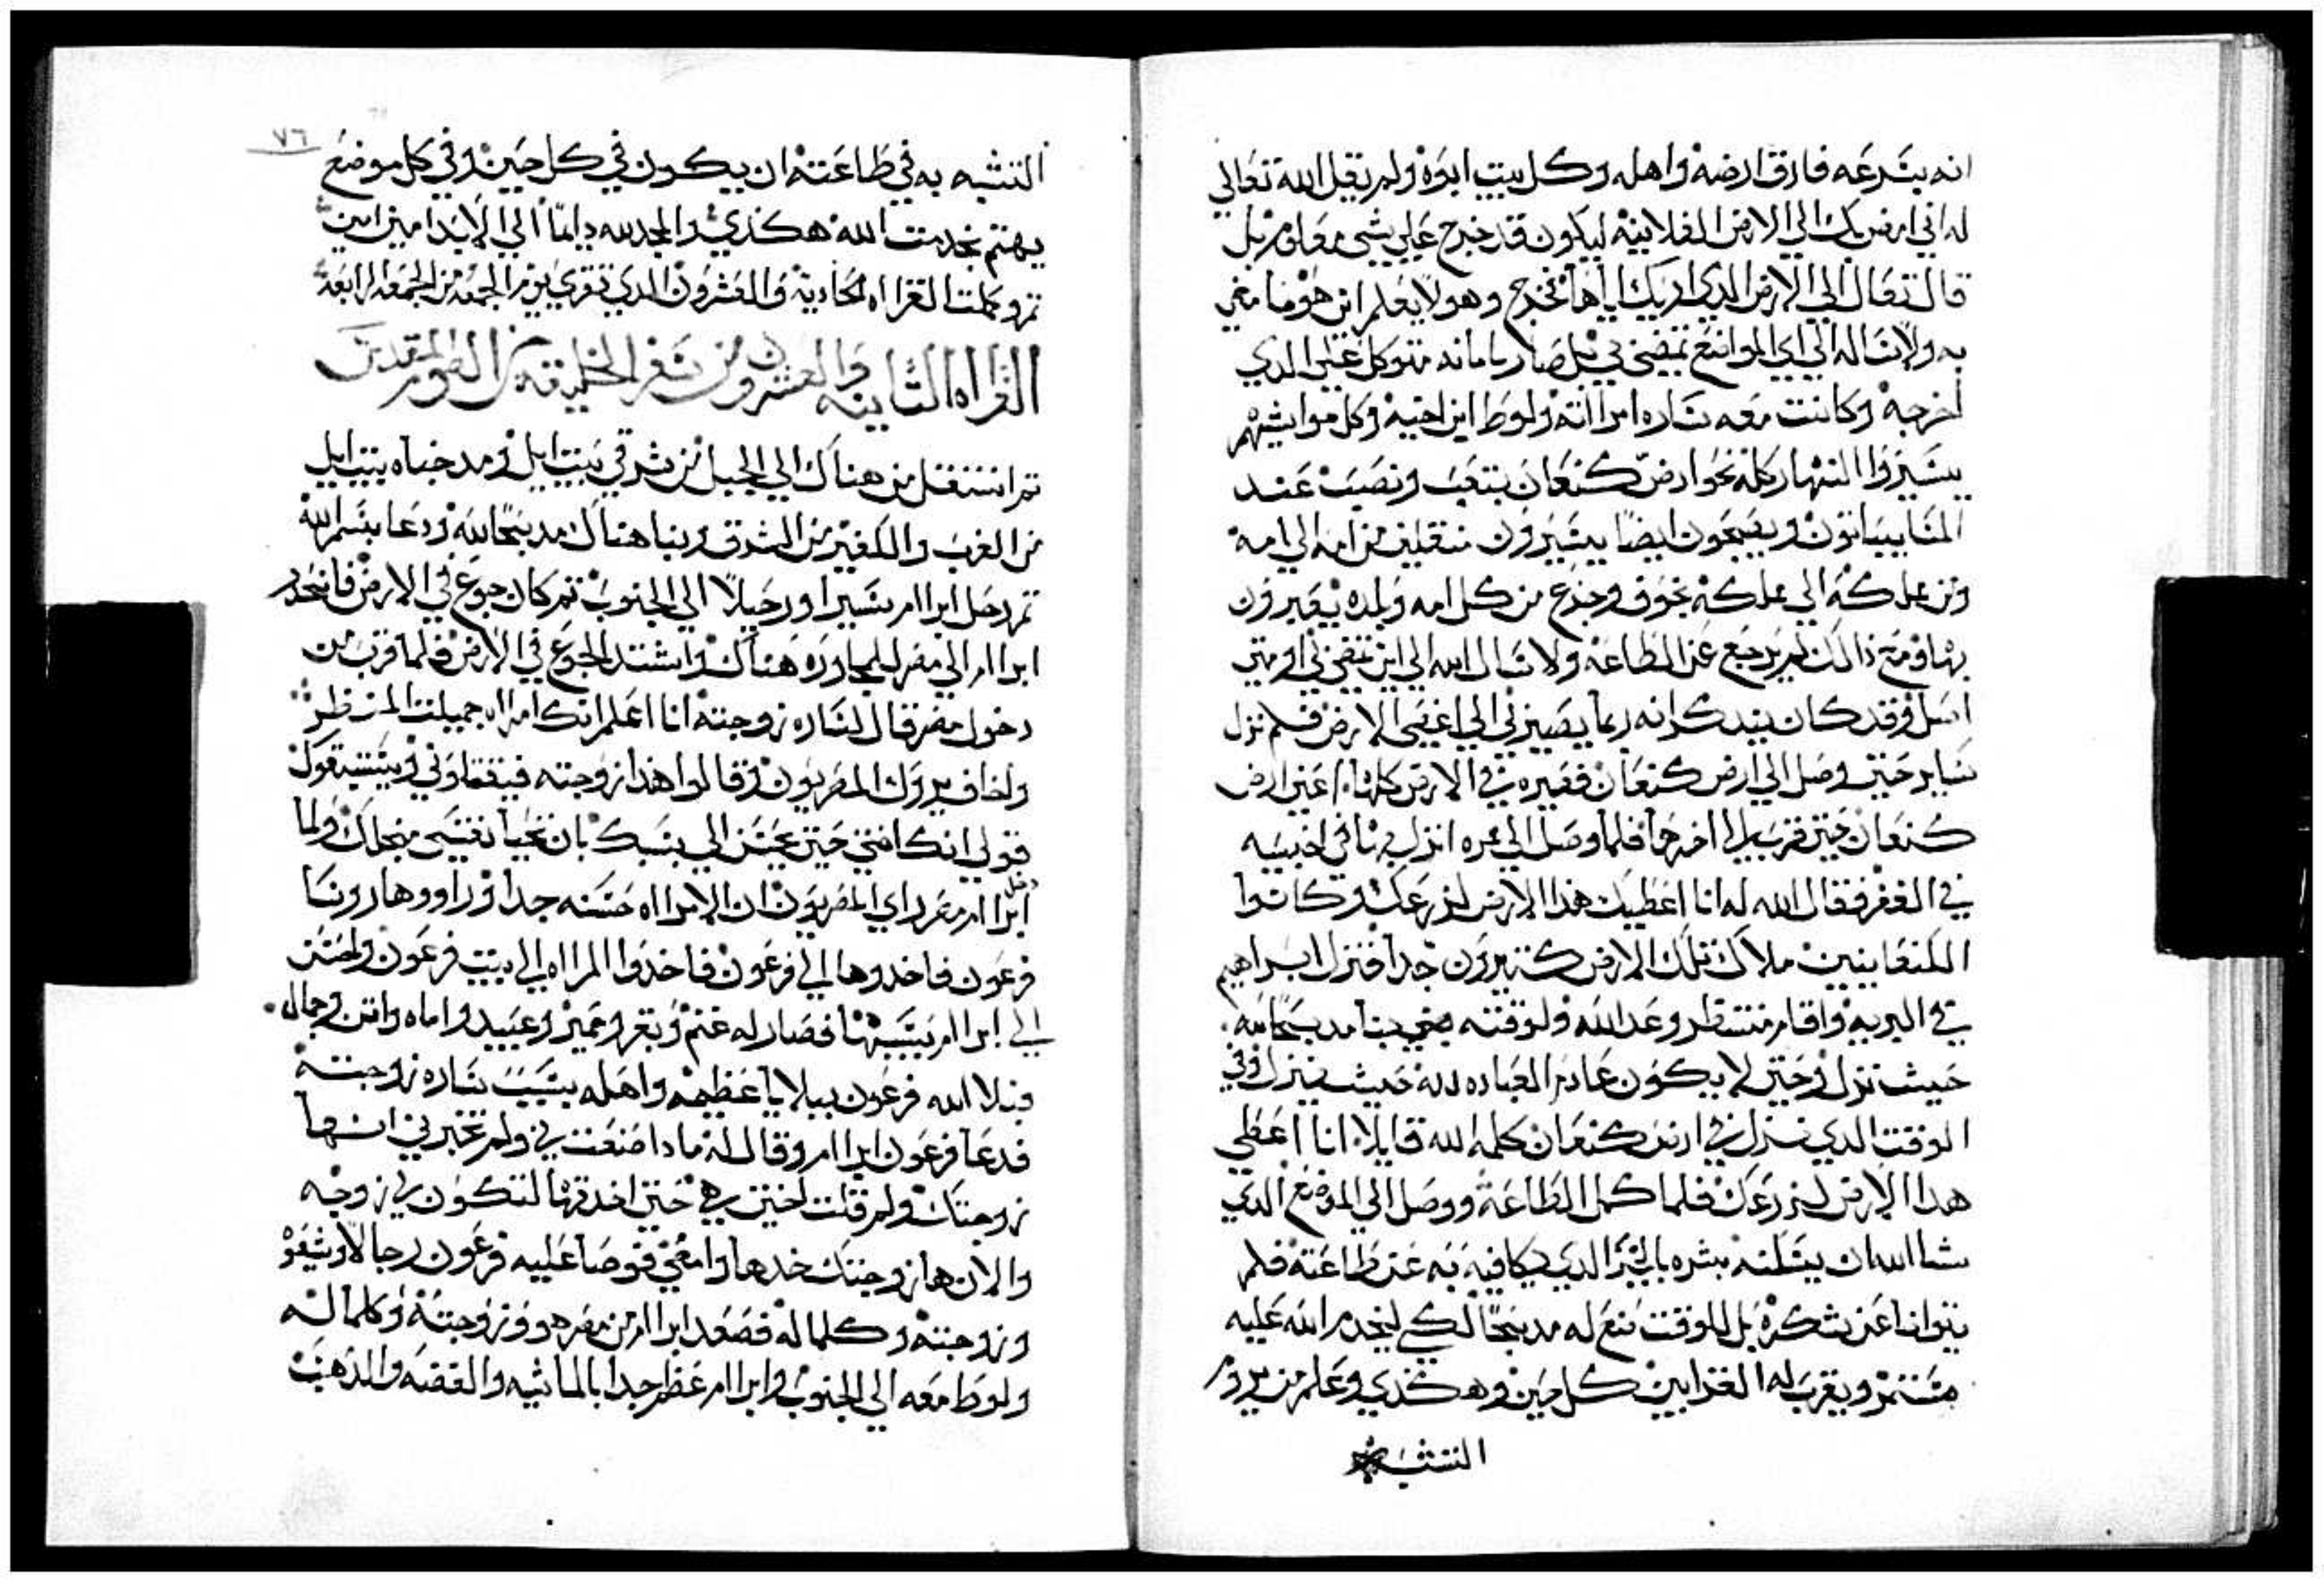 انه بسرعه فارق ارضه واهله وكل بيت ابوه ولم يقل الله تعالي
له اني امض بك الي الارض الفلانيه ليكون قد خرج علي شي معلوم بل
قال تعال الي الارض الدي اريك اياها فخرج وهو لا يعلم اين هو ماضي
به ولا سال الي اي المواضع تمضي بي بل صار بامانه متوكل علي الدي
اخرجه وكانت معه ساره امراته ولوط ابن اخيه وكل مواشيهم
يسيروا النهار كله نحو ارض كنعان بتعب ونصب عند
المسا يبياتون ويصبحون ايضا يسيرون منتقلين من امه الي امه
ومن مملكه الي مملكه بخوف وجزع من كل امه وبلده يعبرون
بها ومع ذالك لم يرجع عن الطاعه ولا سال الله الي اين تمضي بي او متي
اصل وقد كان يتدكر انه ربما يصير بي الي اقصي الارض فلم نزل
ساير حتي وصل الي ارض كنعان فقيره في الارض كلها اعني ارض
كنعان حتي قرب الي اخرها فلما وصل الي
في القفر فقال الله له انا اعطيك هدا الارض لزرعك وكانوا
الكنعانيين ملاك تلك الارض كتيرون جدا فنزل ابراهيم
في البريه واقام منتظر وعد الله ولوقته بنا مدبحا
حيث نزل وحتي لا يكون عادم العباده لله حيث ينزل وفي
الوقت الدي نزل في ارض كنعان كلمه الله قايلا انا اعطي
هدا الارض لزرعك فلما كمل الطاعه ووصل الي الموضع الدي
شا الله ان يسكنه بشره بالخير الدي يكافيه به عن طاعته فلم
يتوانا عن شكره بل للوقت صنع له مدبحا لكي ليخدم الله عليه
مستمر ويقرب له القرابين كل حين وهكذي وعلم من يروم
التشبه
٧٦
التشبه به في طاعته ان يكون في كل حين وفي كل موضع
يهتم بخدمت الله هكذي والمجد لله دايما الي الابد امين امين
تم وكملت القراه الحاديه والعشرون الدي تقري يوم الجمعه من الجمعه الرابعه
القراه التانيه والعشرون من سفر الخليقه من الصوم المقدس
تم انتقل من هناك الي الجبل من شرقي بيت ايل ومد خباه بيت ايل
من الغرب والكفير من الشرق وبنا هناك مدبحا لله ودعا بسم الله
تم رحل ابراام سيرا ورحيلا الي الجنوب تم كان جوع في الارض فانحدر
ابراام الي مصر ليجاوره هناك واشتد الجوع في الارض فلما قرب من
دخول مصر قال لساره زوجته انا اعلم انك امراه جميلت المنظر
واخاف يروك المصريون وقالوا هدا زوجته فيقتلوني ويستبقوك
قولي انك اختي حتي يحسن الي بسببك بان تحيا نفسي من اجلك ولما
دخل ابراام مصر راي المصريون ان الامراه حسنه جدا وراووها روسا
فرعون فاخدوها الي فرعون فاخدوا المراه الي بيت فرعون واحسن
الي ابراام بسببها فصار له غنم وبقر وحمير وعبيد واماه واتن وجمال
فبلا الله فرعون ببلايا عظيمه واهله بسبب ساره زوجته
فدعا فرعون ابراام وقال له مادا صنعت بي ولم تخبرني انها
زوجتك ولم قلت اختي هي حتي اخدتها لتكون لي زوجه
والان ها زوجتك خدها وامضي فوصا عليه فرعون رجالا وشيعوه
وزوجته وكلما له فصعد ابراام من مصر هو وزوجته وكلما له
ولوط معه الي الجنوب وابراام عظم جدا بالماشيه والفضه والدهب